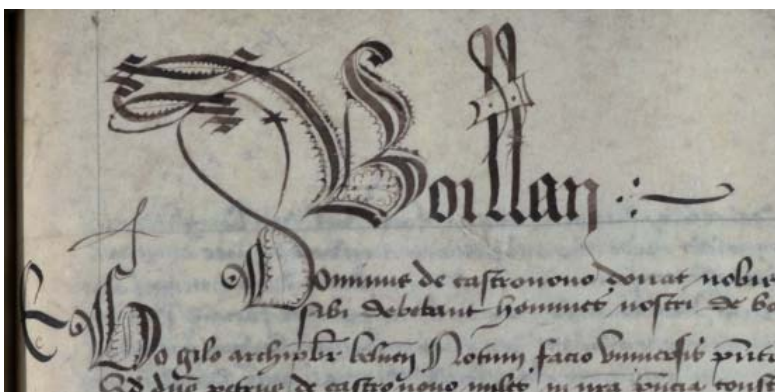 Boillan
Dominus de castronovo donat nobis
sibi debebant homines nostri de bo
Ego gilo archipbr beluen Notum facio vniuersis pnta
Qd dns petrus de castro nouo miles in nra pntia const